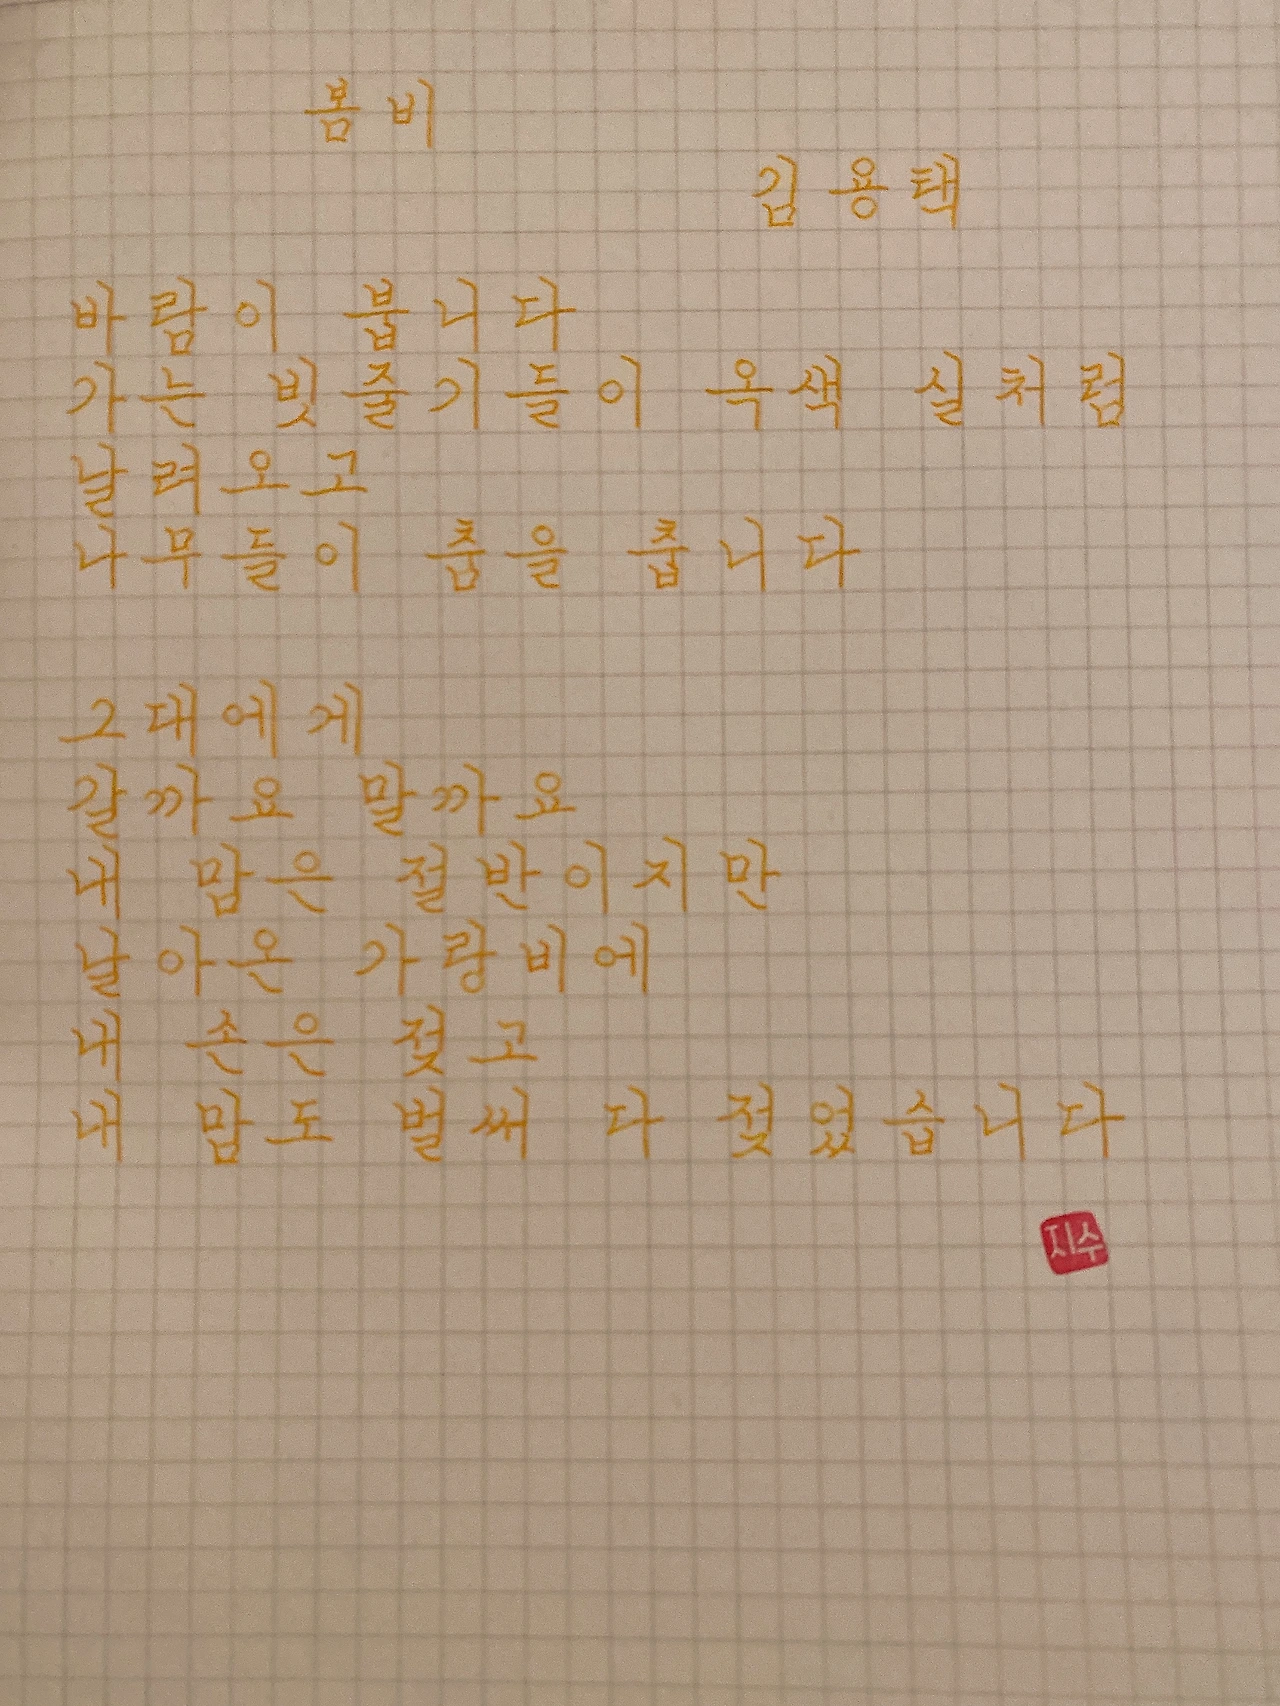 봄비
김용택
바람이 붑니다
가는 빗줄기들이 옥색 실처럼
날려오고
나무들이 춤을 춥니다
그대에게
갈까요 말까요
내 맘은 절반이지만
날아온 가랑비에
내 손은 젖고
내 맘도 벌써 다 젖었습니다
지수